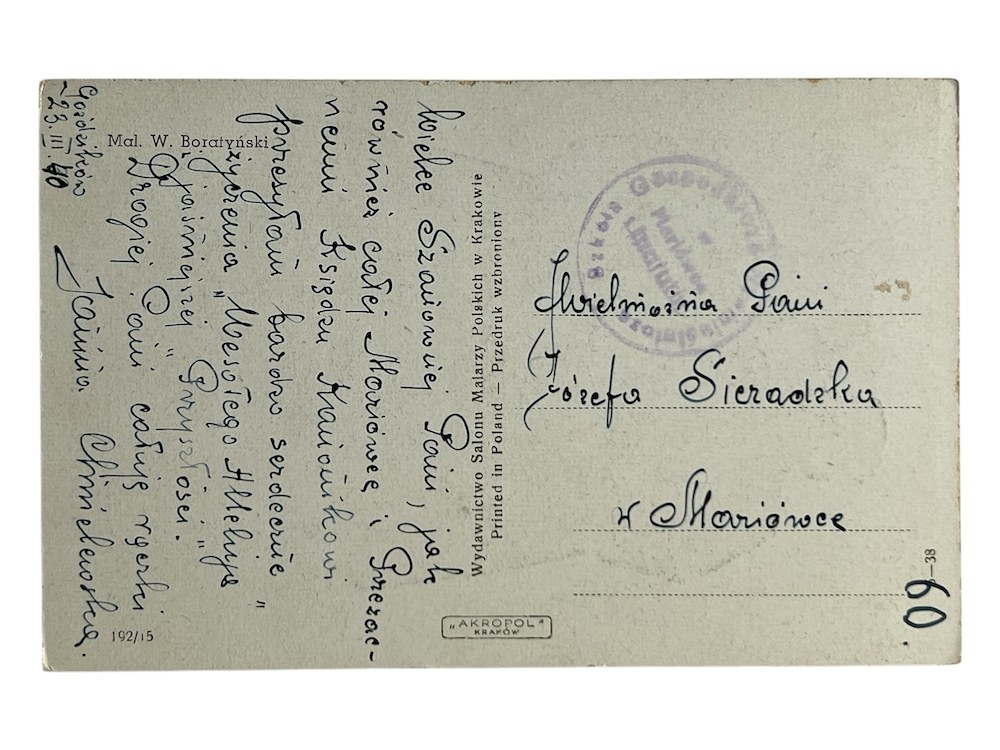 Goździków
23.III 40
Mal. W. Boratyński
Wielce Szanownej Pani, jak
również całej Mariówce i Przezac-
nemu Księdzu Kanonikowi
przesyłam bardzo serdecznie
życzenia „Wesołego Alleluja"
i „jaśniejszej Przyszłości."
Drogiej Pani całuję rączki
Janina Chmielewska.
192/15
Wydawnictwo Salonu Malarzy Polskich w Krakowie
Printed in Poland — Przedruk wzbroniony
„AKROPOL"
KRAKÓW
Szkoła Gospodarcza
Mariówka
JWielmożna Pani
Józefa Sieradzka
w Mariówce
—38
60.